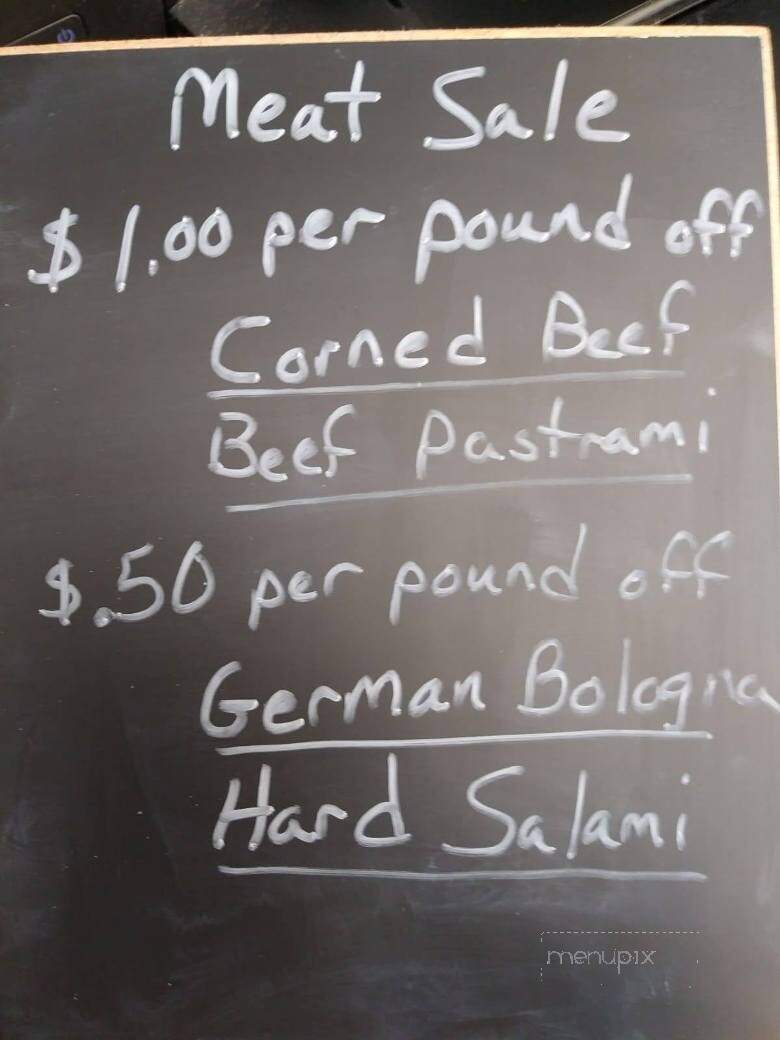 Meat Sale
$1.00 per pound off
Corned Beef
Beef Pastrami
$.50 per pound off
German Bologna
Hard Salami
menupix